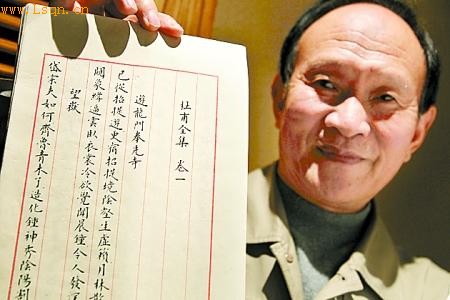 www.Lszn.cn
杜甫全集 卷一
遊龍門奉先寺
已從招提遊更宿招提境陰壑生虛籟月林散
闕象緯逼雲臥衣裳冷欲覺聞晨鐘令人發
望嶽
岱宗夫如何齊魯青未了造化鍾神秀陰陽割